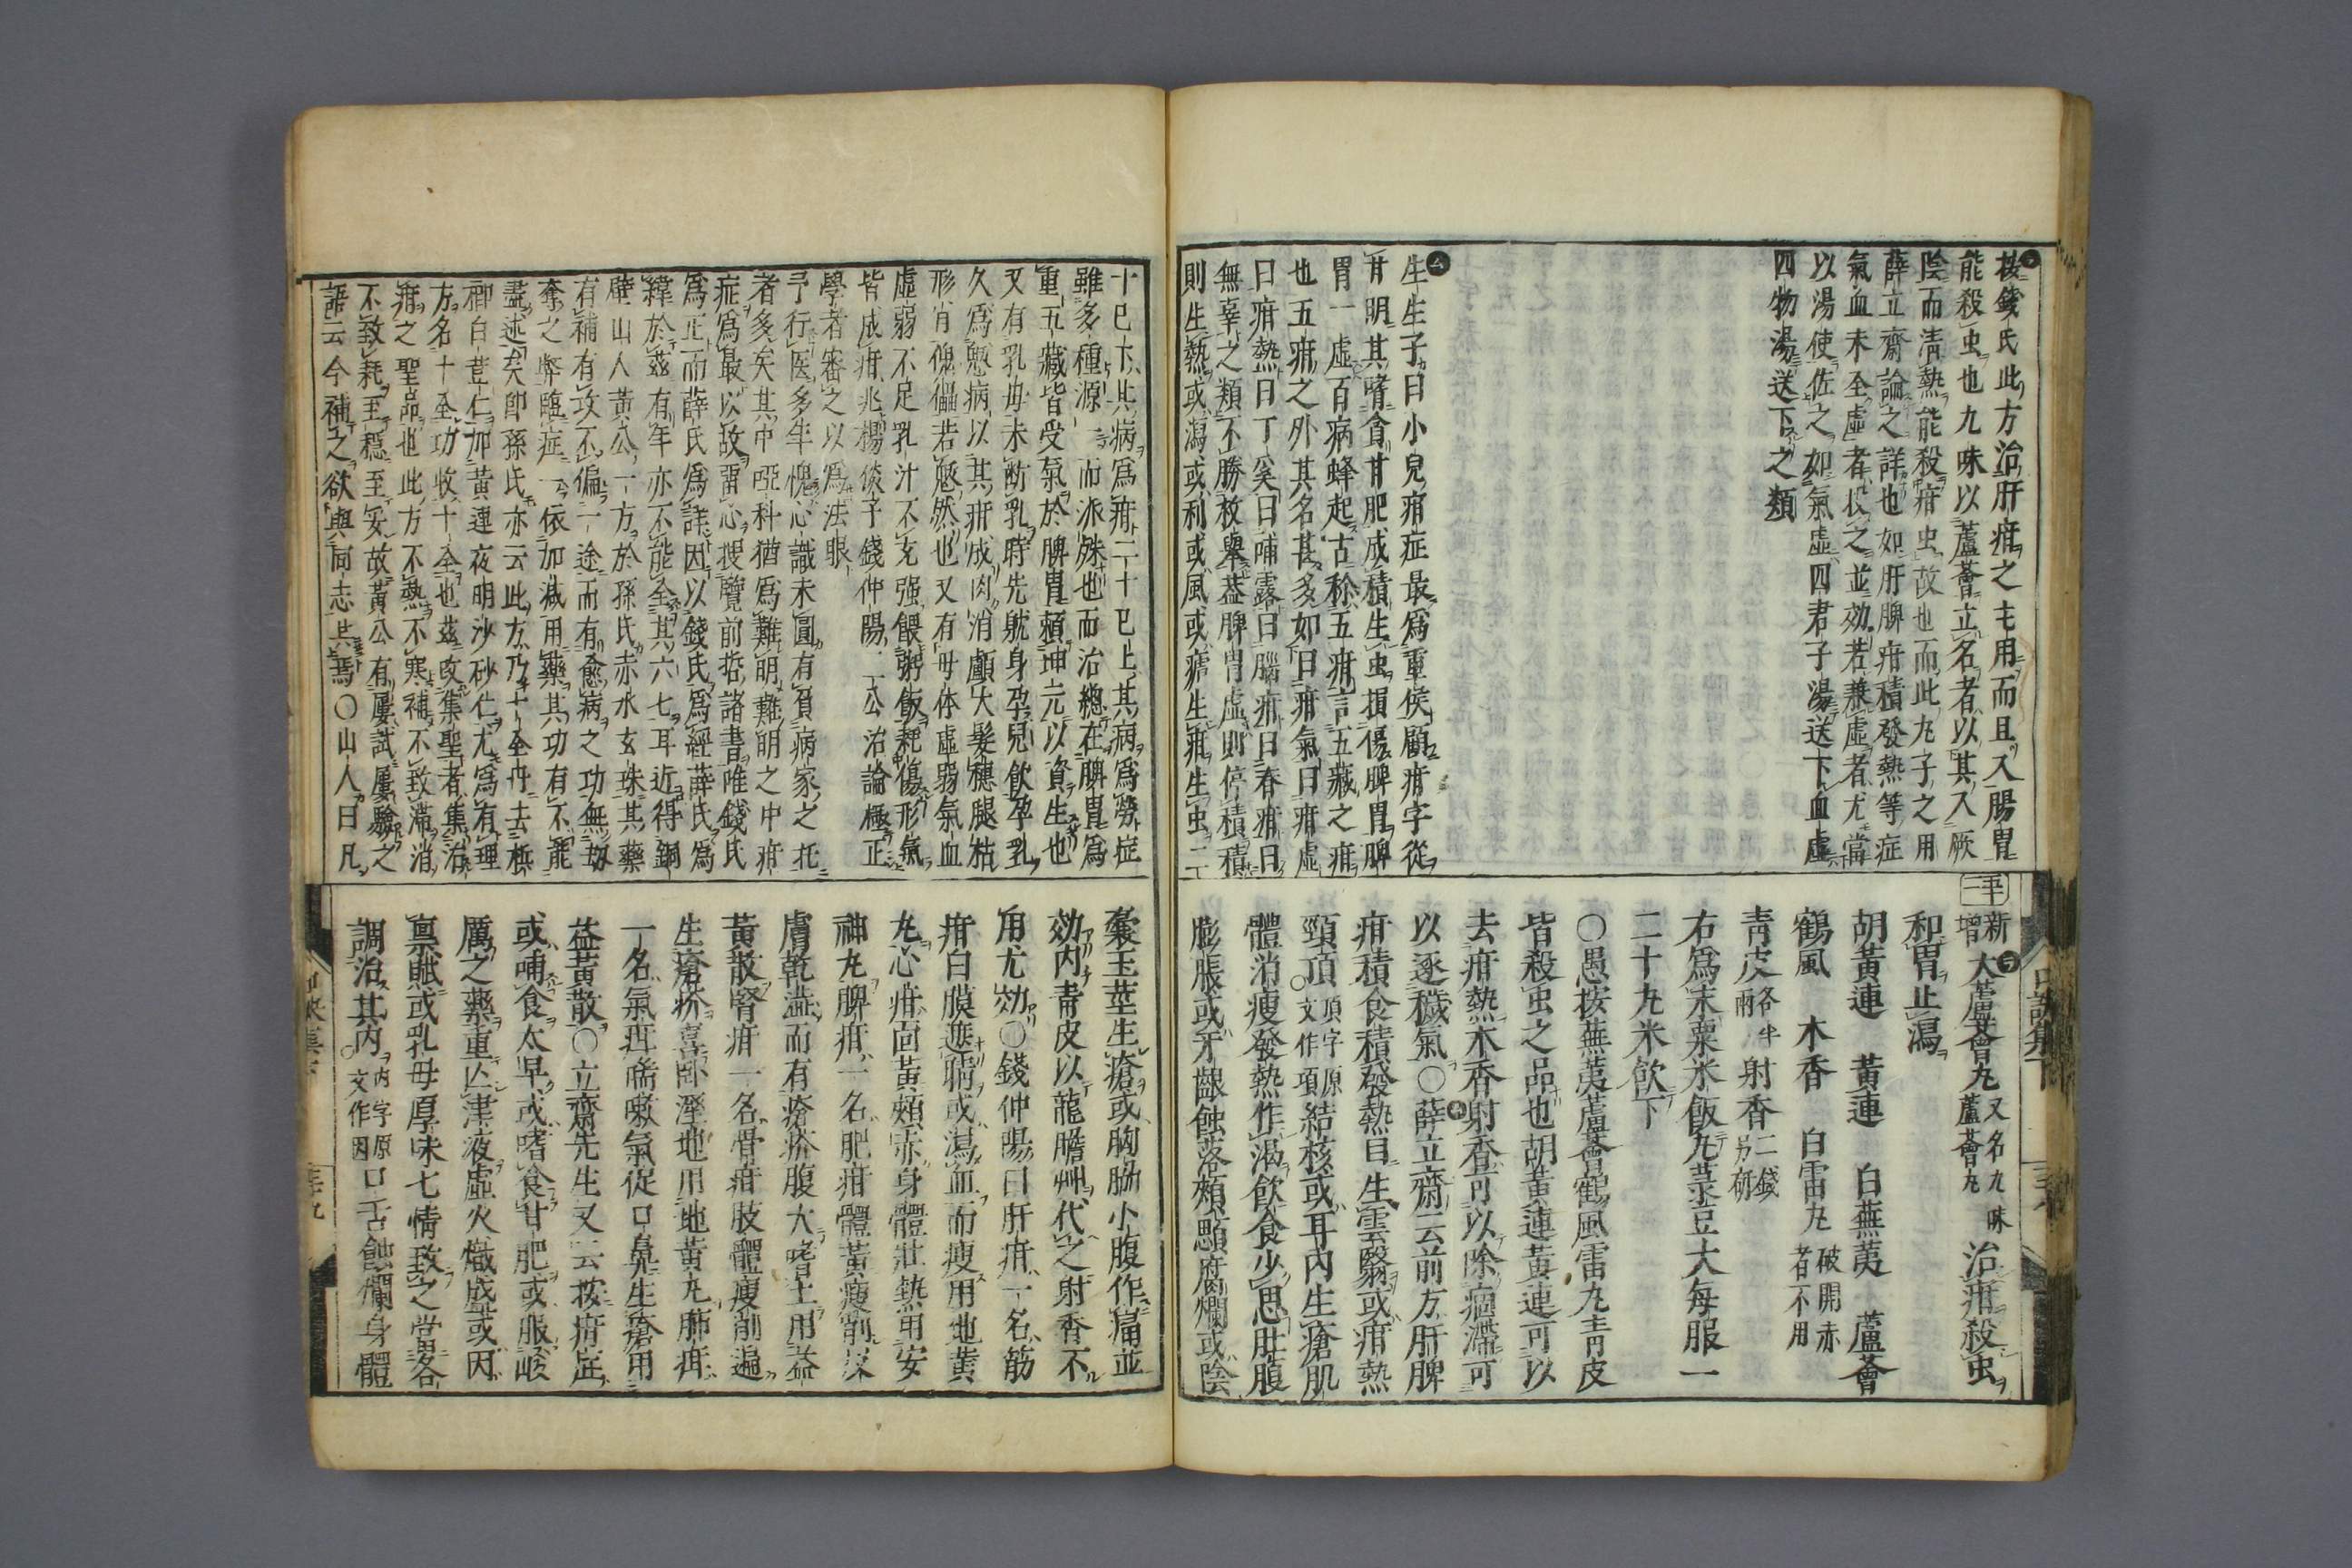 按錢氏此方治肝疳之主用而且入腸胃
能殺虫也九味以蘆薈立名者以其入厥
陰而清熱能殺疳虫故也而此九子之用
薛立齋論之詳也如肝脾疳積發熱等症
氣血未全虛者投之並効若兼虛者尤當
以湯使佐之如氣虛四君子湯送下血虛
四物湯送下之類
生生子曰小兒疳症最爲重侯顧疳字從
甘明其嗜食甘肥成積生虫損傷脾胃脾
胃一虛百病蜂起古称五疳言五藏之疳
也五疳之外其名甚多如曰疳氣曰疳虛
曰疳熱曰丁奚曰哺露曰腦疳曰脊疳曰
無辜之類不勝枚舉葢脾胃虛則停積積
則生熱或瀉或利或風或瘧生疳生虫二
新增 大蘆薈丸 又名九味蘆薈丸 治疳殺虫
和胃止瀉
胡黃連 黃連 白蕪荑 蘆薈
鶴風 木香 白雷丸 破開赤者不用
靑皮 各半兩 射香 二錢另研
右爲末粟米飯丸菉豆大每服一
二十丸米飲下
〇愚按蕪荑蘆薈鶴風雷丸青皮
皆殺虫之品也胡黃連黃連可以
去疳熱木香射香可以除痼滯可
以逐穢氣〇薛立齋云前方肝脾
疳積食積發熱目生雲翳或疳熱
頸項 項字原文作項 結核或耳內生瘡肌
體消瘦發熱作渴飲食少思肚腹
膨脹或牙齦蝕落頰顋腐爛或陰
十已下其病爲疳二十已上其病爲癆症
雖多種源一而派殊也而治總在脾胃爲
重五藏皆受氣於脾胃頼坤元以資生也
又有乳母未断乳時先躭身孕兒飲孕乳
久爲魃病以其疳成肉消顱大髮穗腿枯
形肖傀儡若魃然也又有母体虛弱氣血
虛弱不足乳汁不充强餵粥飯耗傷形氣
皆成疳兆楊倓子錢仲陽二公治論極正
學者審之以爲法眼
予行医多年愧心識未圓有負病家之托
者多矣其中啞科猶爲難明難明之中疳
症爲最以故畱心搜覽前哲諸書唯錢氏
爲正而薛氏爲詳因以錢氏爲經薛氏爲
緯於茲有年亦不能全其六七耳近得銅
壁山人黃公一方於孫氏赤水玄珠其藥
有補有攻不偏一途而有愈病之功無攻
奪之弊臨症一依加減用藥其功有不能
盡述矣卽孫氏亦云此方乃十全丹去梹
榔白荳仁加黃連夜明沙砂仁尤爲有理
方名十全功收十全也茲改集聖者集治
疳之聖品也此方不熱不寒補不致滯消
不致耗至穩至安故黃公有屢試屢驗之
語云今補之欲與同志共焉〇山人曰凡
囊玉莖生瘡或胸脇小腹作痛並
効内青皮以龍膽艸代之射香不
用尤効〇錢仲陽曰肝疳一名筋
疳白膜遮睛或瀉血而瘦用地黃
丸心疳面黃頰赤身體壯熱用安
神丸脾疳一名肥疳體黃瘦削皮
膚乾澁而有瘡疥腹大嗜土用益
黃散腎疳一名骨疳肢體瘦削遍
生瘡疥喜臥溼地用地黃丸肺疳
一名氣疳喘嗽氣促口鼻生瘡用
益黃散〇立齋先生又云按疳症
或哺食太早或嗜食甘肥或服峻
厲之藥重亾津液虛火熾盛或因
禀賦或乳母厚味七情致之當各
調治其內 內字原文作因 口舌蝕爛身體